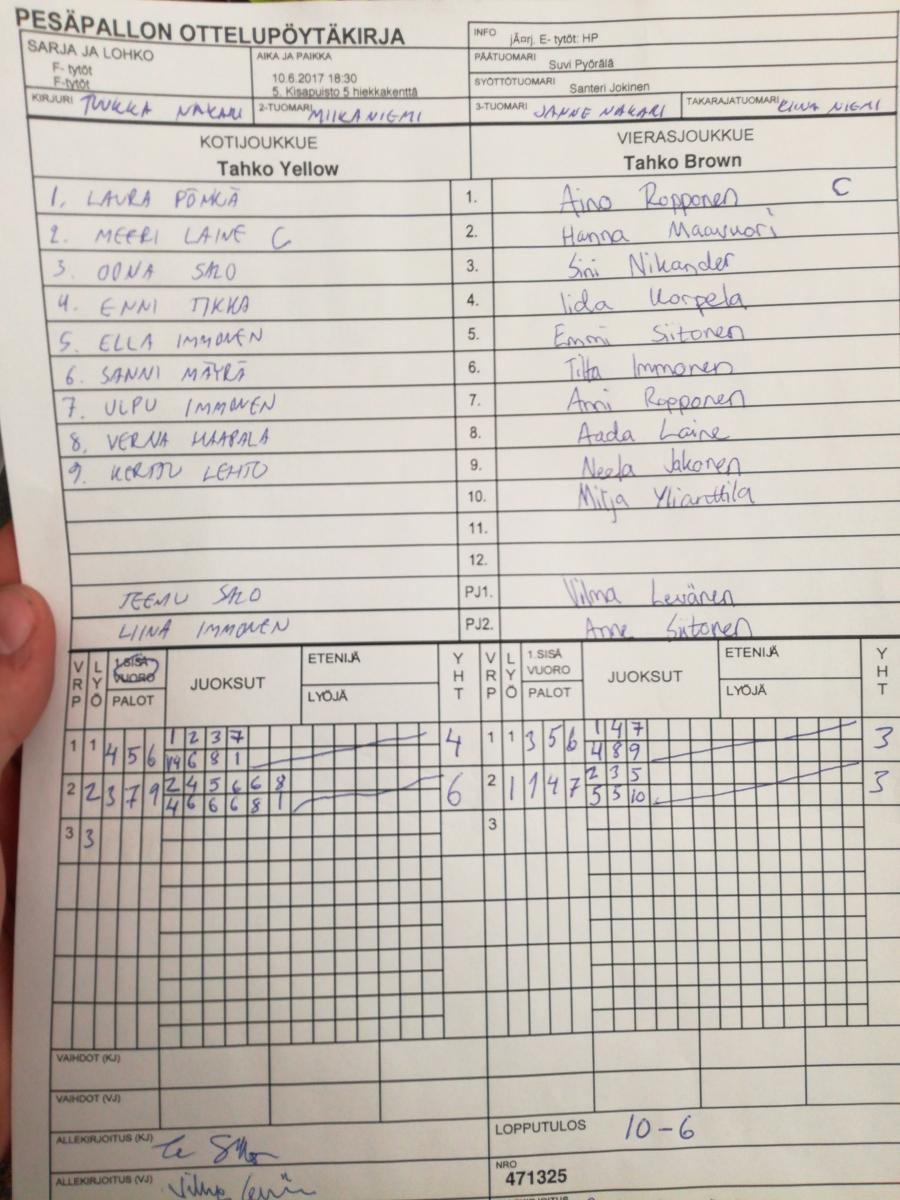 PESÄPALLON OTTELUPÖYTÄKIRJA
INFO jÄ¤rj. E- tytöt: HP
SARJA JA LOHKO
F- tytöt
F-tytöt
AIKA JA PAIKKA
10.6.2017 18:30
5. Kisapuisto 5 hiekkakenttä
PÄÄTUOMARI Suvi Pyörälä
SYÖTTÖTUOMARI Santeri Jokinen
KIRJURI TUUKKA NAKARI
2-TUOMARI MIIKA NIEMI
3-TUOMARI JANNE NAKARI
TAKARAJATUOMARI RIINA NIEMI
KOTIJOUKKUE
Tahko Yellow
VIERASJOUKKUE
Tahko Brown
1. LAURA PÖNKÄ 1. Aino Ropponen C
2. MEERI LAINE C 2. Hanna Maavuori
3. OONA SALO 3. Sini Nikander
4. ENNI TIKKA 4. Iida Korpela
5. ELLA IMMONEN 5. Emmi Siitonen
6. SANNI MÄYRÄ 6. Tilta Immonen
7. ULPU IMMONEN 7. Anni Ropponen
8. VERNA HAAPALA 8. Aada Laine
9. KERTTU LEHTO 9. Neela Jakonen
10. Milja Yliarttila
11.
12.
TEEMU SALO PJ1. Vilma Levänen
LIINA IMMONEN PJ2. Anne Siitonen
VRP LYÖ 1.SISÄ VUORO PALOT JUOKSUT ETENIJÄ LYÖJÄ YHT VRP LYÖ 1.SISÄ VUORO PALOT JUOKSUT ETENIJÄ LYÖJÄ YHT
1 1 4 5 6 1 2 3 7 4 1 1 3 5 6 1 4 7 3
6 8 1 4 8 9
2 2 3 7 9 2 4 5 6 6 8 6 2 1 1 4 7 2 3 5 3
4 6 6 6 8 1 5 5 10
3 3 3
VAIHDOT (KJ)
VAIHDOT (VJ)
ALLEKIRJOITUS (KJ)
LOPPUTULOS 10-6
ALLEKIRJOITUS (VJ)
NRO
471325